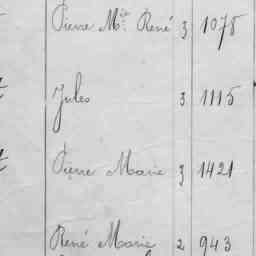 Pierre Mie René 3 1078
Jules 3 1115
Pierre Marie 3 1421
René Marie 2 943